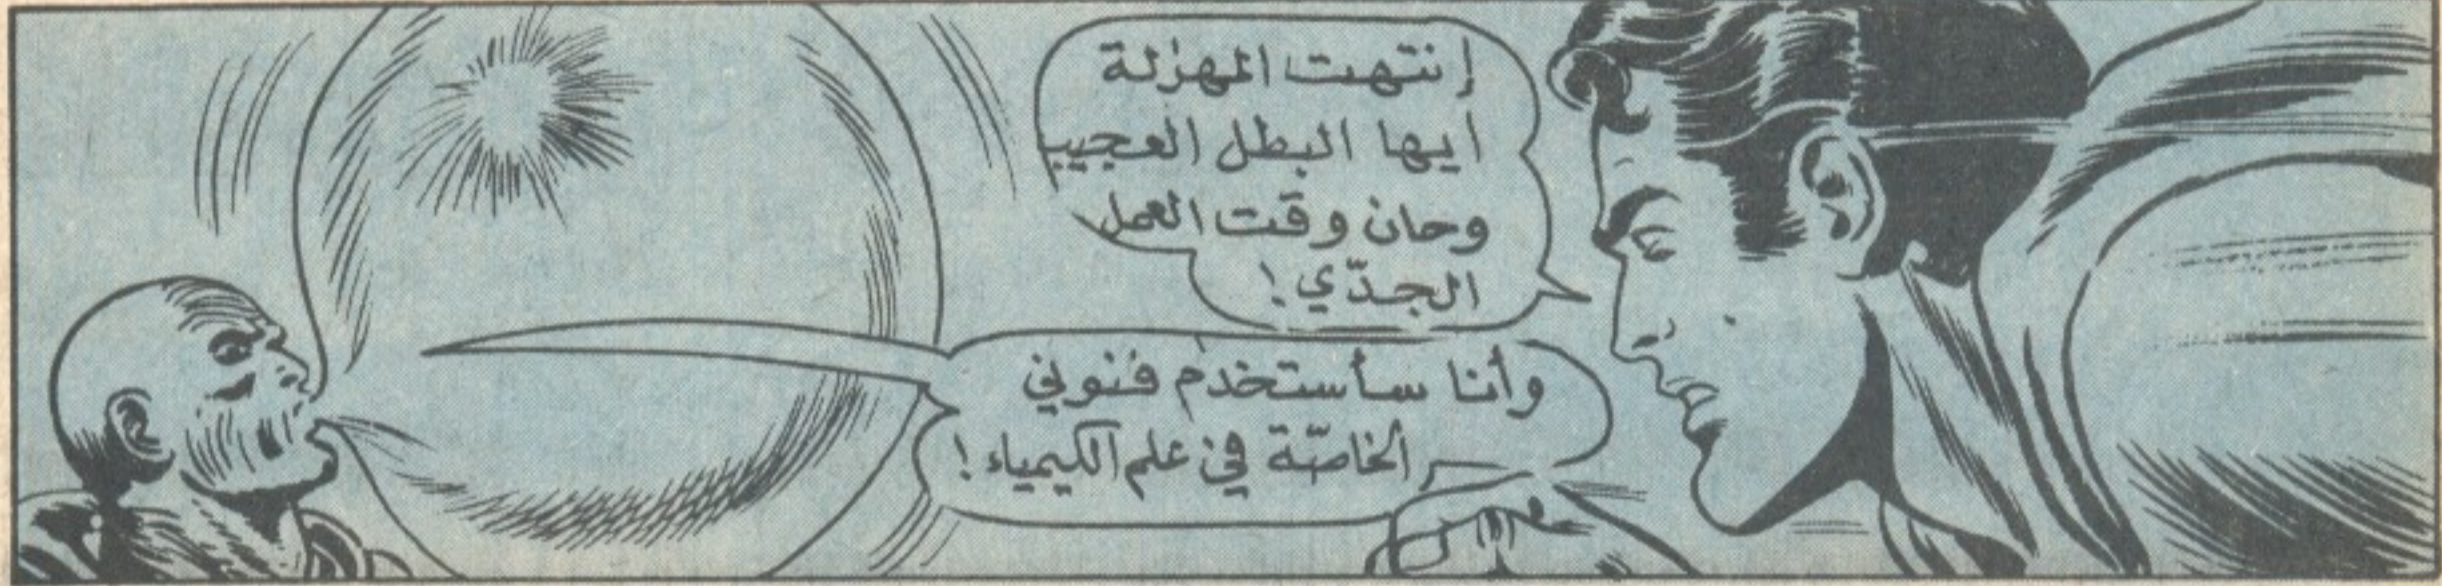 إنتهت المهزلة
ايها البطل العجيب
وحان وقت العمل
الجدّي!
وأنا سأستخدم فنوني
الخاصّة في علم الكيمياء!